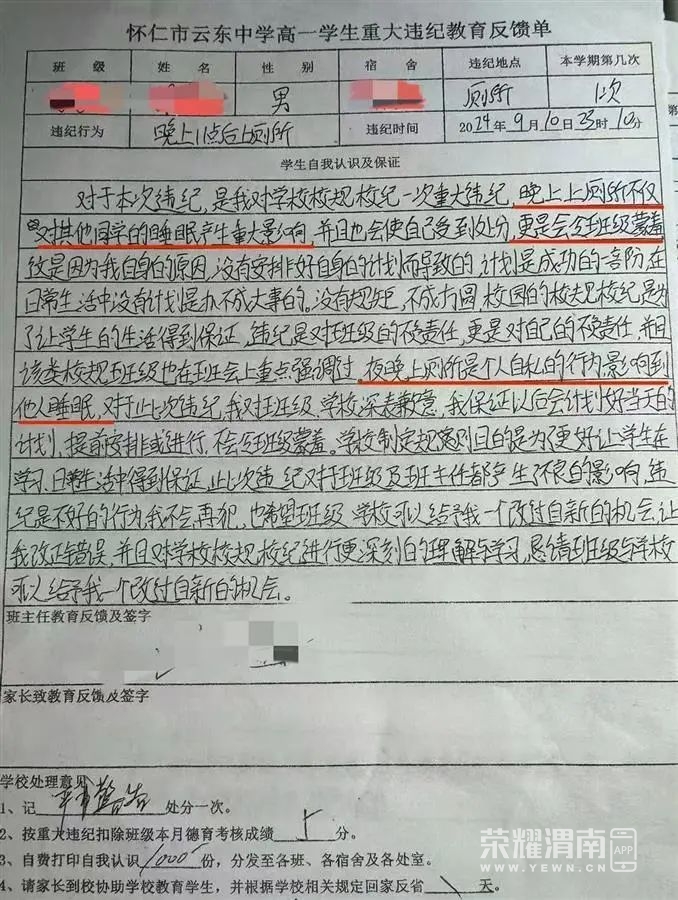 怀仁市云东中学高一学生重大违纪教育反馈单
班 级 姓 名 性 别 宿 舍 违纪地点 本学期第几次
男 厕所 1次
违纪行为 晚上11点后上厕所 违纪时间 2024年9月10日23时10分
学生自我认识及保证
对于本次违纪,是我对学校校规校纪一次重大违纪,晚上上厕所不仅
对其他同学的睡眠产生重大影响,并且也会使自己受到处分,更是会给班级蒙羞
这是因为我自身的原因,没有安排好自身的计划而导致的,计划是成功的一部分,在
日常生活中没有计划是办不成大事的。没有规矩,不成方圆,校园的校规校纪,是为
了让学生的生活得到保证,违纪是对班级的不负责任,更是对自己的不负责任,并且
该类校规班级也在班会上重点强调过,夜晚上厕所是个人自私的行为影响到
他人睡眠,对于此次违纪,我对班级、学校深表歉意,我保证以后会计划好当天的
计划,提前安排或进行,不会给班级蒙羞。学校制定规章原则目的是为了更好让学生在
学习、日常生活中得到保证,此次违纪对于班级及班主任都产生了不良的影响,违
纪是不好的行为我不会再犯,也希望班级、学校可以给予我一个改过自新的机会,让
我改正错误,并且对学校校规、校纪进行更深刻的理解与学习,恳请班级与学校
可以给予我一个改过自新的机会。
班主任教育反馈及签字
家长致教育反馈及签字
学校处理意见
1、记 严重警告 处分一次。
2、按重大违纪扣除班级本月德育考核成绩 5 分。
3、自费打印自我认识 1000 份,分发至各班、各宿舍及各处室。
4、请家长到校协助学校教育学生,并根据学校相关规定回家反省 \ 天。
荣耀渭南 APP
WWW.YEWN.CN